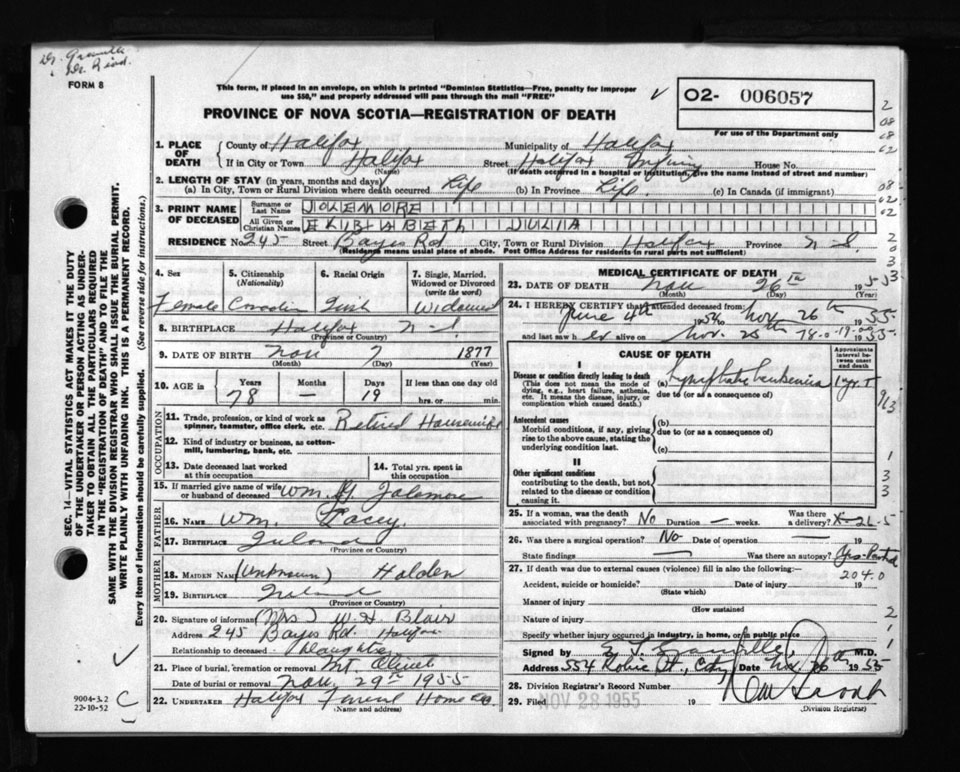 Dr. Granville
Dr. Read.
FORM 8
This form, if placed in an envelope, on which is printed "Dominion Statistics—Free, penalty for improper
use $50," and properly addressed will pass through the mail "FREE"
PROVINCE OF NOVA SCOTIA—REGISTRATION OF DEATH
O2- 006057
For use of the Department only
1. PLACE OF DEATH
County of Halifax Municipality of Halifax
If in City or Town Halifax Street Halifax Infirmary House No.
(Name) (If death occurred in a hospital or institution, give the name instead of street and number)
2. LENGTH OF STAY (in years, months and days)
(a) In City, Town or Rural Division where death occurred Life (b) In Province Life. (c) In Canada (if immigrant)
3. PRINT NAME OF DECEASED
Surname or Last Name JOLEMORE
All Given or Christian Names ELIZABETH JULIA
RESIDENCE No. 245 Street Bayes Rd City, Town or Rural Division Halifax Province N-S.
(Residents means usual place of abode. Post Office Address for residents in rural parts not sufficient)
4. Sex
Female
5. Citizenship (Nationality)
Canadian
6. Racial Origin
Irish
7. Single, Married, Widowed or Divorced (write the word)
Widowed
8. BIRTHPLACE Halifax N-S
(Province or Country)
9. DATE OF BIRTH Nov 7 1877
(Month) (Day) (Year)
10. AGE in Years Months Days If less than one day old
78 — 19 hrs. or min.
OCCUPATION
11. Trade, profession, or kind of work as spinner, teamster, office clerk, etc. Retired Housewife
12. Kind of industry or business, as cotton-mill, lumbering, bank, etc.
13. Date deceased last worked at this occupation
14. Total yrs. spent in this occupation
15. If married give name of wife or husband of deceased Wm. Jolemore
FATHER
16. NAME Wm. Pacey.
17. BIRTHPLACE Ireland
(Province or Country)
MOTHER
18. MAIDEN NAME (Unknown) Holden
19. BIRTHPLACE Ireland
(Province or Country)
20. Signature of informant (Mrs) W. H. Blair
Address 245 Bayes Rd. Halifax
Relationship to deceased Daughter
21. Place of burial, cremation or removal Mt. Olivet
Date of burial or removal Nov. 29th 1955
22. UNDERTAKER Halifax Funeral Home Co.
(Name and address)
MEDICAL CERTIFICATE OF DEATH
23. DATE OF DEATH Nov 26th 1955
(Month) (Day) (Year)
24. I HEREBY CERTIFY that I attended deceased from:
June 4th 1954 to Nov. 26th 1955
and last saw her alive on Nov. 25th 1955
CAUSE OF DEATH
Approximate interval between onset and death
I
Disease or condition directly leading to death
(This does not mean the mode of dying, e.g., heart failure, asthenia, etc. It means the disease, injury, or complication which caused death.)
(a) Lymphatic Leukemia 1 yr. +
due to (or as a consequence of)
Antecedent causes
Morbid conditions, if any, giving rise to the above cause, stating the underlying condition last.
(b)
due to (or as a consequence of)
(c)
II
Other significant conditions
contributing to the death, but not related to the disease or condition causing it.
25. If a woman, was the death associated with pregnancy? No Duration — weeks. Was there a delivery?
26. Was there a surgical operation? No Date of operation — 19
State findings — Was there an autopsy? Yes-Partial
27. If death was due to external causes (violence) fill in also the following:—
204.0
Accident, suicide or homicide? Date of injury 19
(State which)
Manner of injury
(How sustained)
Nature of injury
Specify whether injury occurred in industry, in home, or in public place
Signed by Granville M.D.
Address 554 Robie St., City Date Nov. 26th 1955
28. Division Registrar's Record Number
29. Filed NOV 28 1955 19
(Division Registrar)
SEC. 14—VITAL STATISTICS ACT MAKES IT THE DUTY
OF THE UNDERTAKER OR PERSON ACTING AS UNDER-
TAKER TO OBTAIN ALL THE PARTICULARS REQUIRED
IN THE "REGISTRATION OF DEATH" AND TO FILE THE
SAME WITH THE DIVISION REGISTRAR WHO SHALL ISSUE THE BURIAL PERMIT.
WRITE PLAINLY WITH UNFADING INK. THIS IS A PERMANENT RECORD.
Every item of information should be carefully supplied. (See reverse side for instructions.)
9004-3.2
22-10-52
C